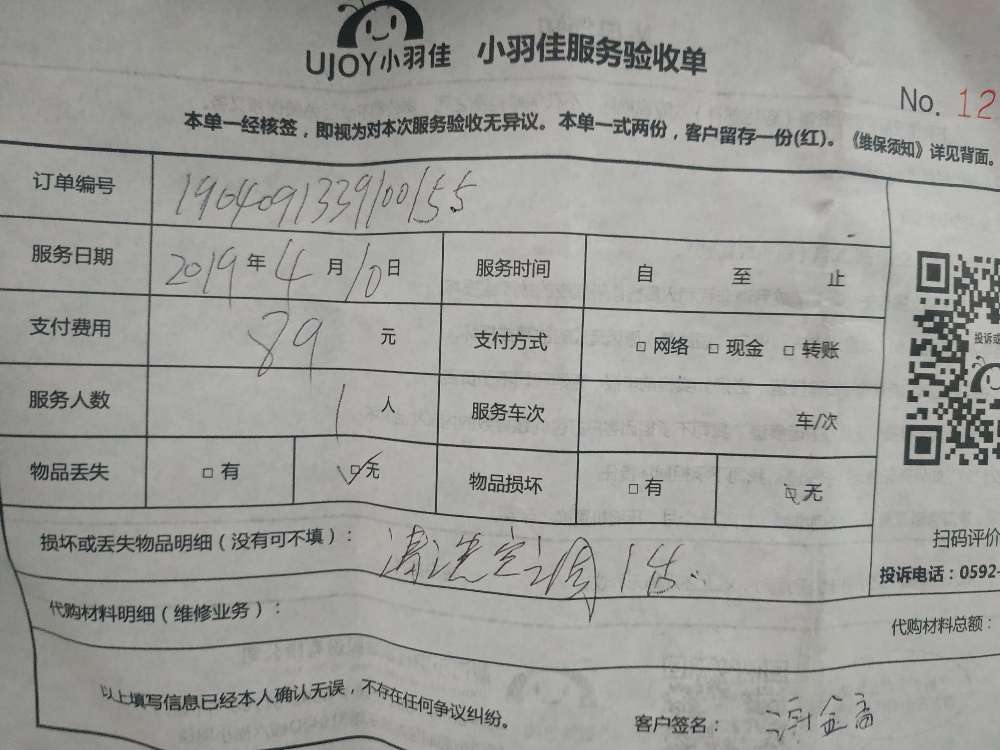 UJOY小羽佳 小羽佳服务验收单
No. 12
本单一经核签，即视为对本次服务验收无异议。本单一式两份，客户留存一份(红)。《维保须知》详见背面。
订单编号 190409133910055
服务日期 2019年4月10日 服务时间 自 至 止
支付费用 89元 支付方式 □网络 □现金 □转账
服务人数 1人 服务车次 车/次
物品丢失 □有 □无 物品损坏 □有 □无
损坏或丢失物品明细（没有可不填）： 清洗空调1台.
扫码评价
投诉电话：0592-
代购材料明细（维修业务）： 代购材料总额：
以上填写信息已经本人确认无误，不存在任何争议纠纷。
客户签名：